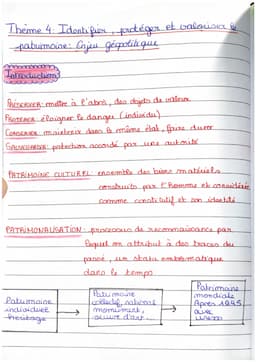 Thème 4: Identifier, protéger et valoriser le
patrimoine: Enjeu géopolitique
Introduction:
PRÉSERVER: mettre à l'abri, des objets de valeur
PROTÉGER: éloigner le danger (individu)
CONSERVER: maintenir dans le même état, faire durer
SAUVEGARDER: protection accordé par une autorité
PATRIMOINE CULTUREL: ensemble des biens matériels
construits par l'Homme et considérés
comme constitutif et son identité
PATRIMONIALISATION: processus de reconnaissance par
lequel on attribut à des traces du
passé, un statu emblématique
dans le temps
Patrimoine
individuel
heritage
→
Patrimoine
collectif, national
monument,
œuvre d'art...
→
Patrimoine
mondiale
Après 1945
avec
UNESCO